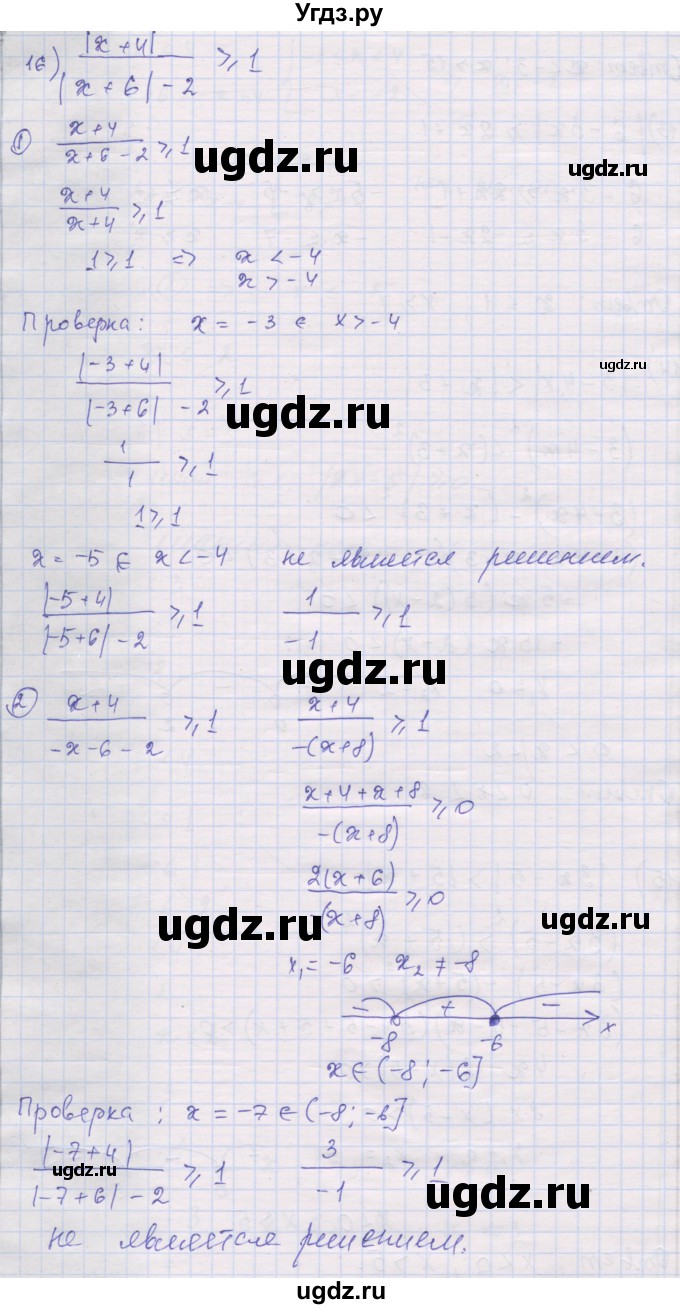 Угдз.ру
16) |x+4| / (|x+6| - 2) ⩾ 1
① (x+4) / (x+6-2) ⩾ 1
ugdz.ru
ugdz.ru
(x+4) / (x+4) ⩾ 1
1⩾1 => x < -4
x > -4
Проверка: x = -3 ∈ x > -4
ugdz.ru
|-3+4| / (|-3+6| - 2) ⩾ 1
ugdz.ru
1 / 1 ⩾ 1
1⩾1
x = -5 ∈ x < -4 не является решением.
|-5+4| / (|-5+6| - 2) ⩾ 1    1 / -1 ⩾ 1
ugdz.ru
② (x+4) / (-x-6-2) ⩾ 1    (x+4) / (-(x+8)) ⩾ 1
(x+4+x+8) / (-(x+8)) ⩾ 0
2(x+6) / (-(x+8)) ⩾ 0
ugdz.ru
ugdz.ru
x₁ = -6    x₂ ≠ -8
- + -
-8 -6 x
x ∈ (-8; -6]
Проверка: x = -7 ∈ (-8; -6]
|-7+4| / (|-7+6| - 2) ⩾ 1    3 / -1 ⩾ 1
ugdz.ru
ugdz.ru
не является решением.
ugdz.ru